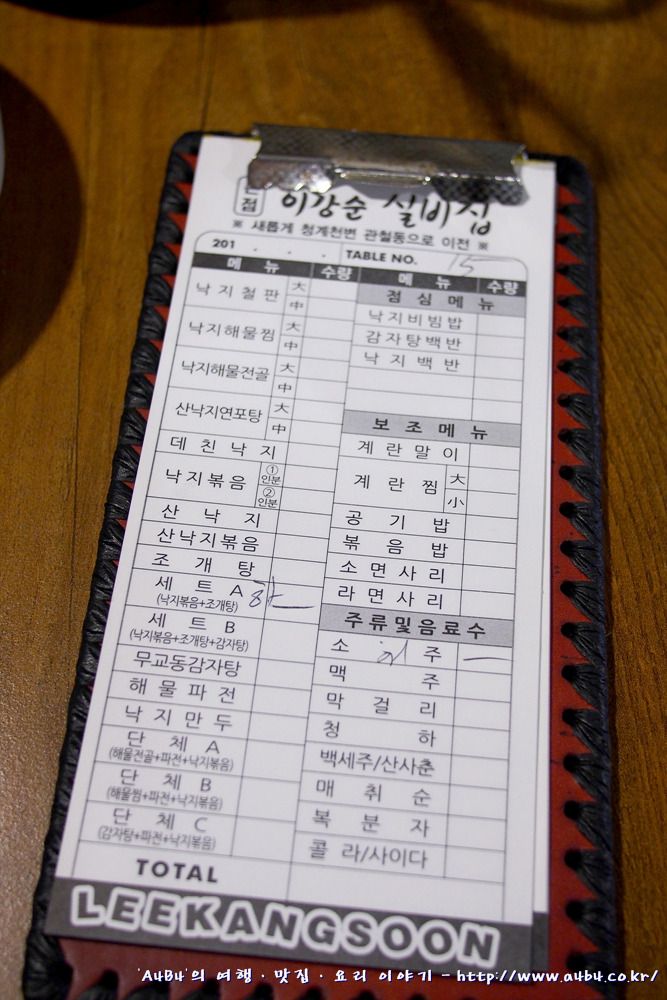 점 이강순 실비집
※ 새롭게 청계천변 관철동으로 이전 ※
201 . . . TABLE NO. 15
메 뉴 수량
낙지철판 大
中
낙지해물찜 大
中
낙지해물전골 大
中
산낙지연포탕 大
中
데 친 낙 지
낙지볶음 ①인분
②인분
산 낙 지
산낙지볶음
조 개 탕
세 트 A
(낙지볶음+조개탕)
세 트 B
(낙지볶음+조개탕+감자탕)
무교동감자탕
해 물 파 전
낙 지 만 두
단 체 A
(해물전골+파전+낙지볶음)
단 체 B
(해물찜+파전+낙지볶음)
단 체 C
(감자탕+파전+낙지볶음)
TOTAL
메 뉴 수량
점 심 메 뉴
낙지비빔밥
감자탕백반
낙 지 백 반
보 조 메 뉴
계 란 말 이
계 란 찜 大
小
공 기 밥
볶 음 밥
소 면 사 리
라 면 사 리
주류및음료수
소 주
맥 주
막 걸 리
청 하
백세주/산사춘
매 취 순
복 분 자
콜 라/사이다
LEEKANGSOON
'AuBu'의 여행 · 맛집 · 요리 이야기 - http://www.aubu.co.kr/